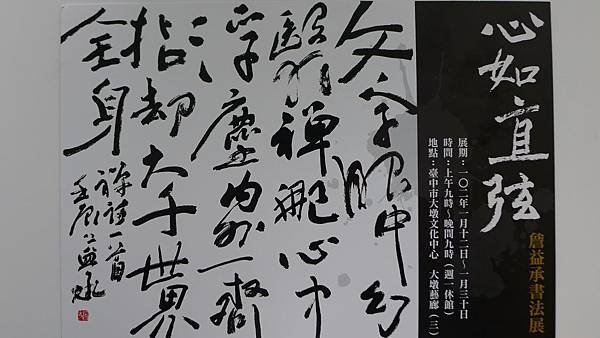 心如直弦
詹益承書法展
展期：一〇二年一月十二日～一月三十日
時間：上午九時～晚間九時（週一休館）
地點：臺中市大墩文化中心　大墩藝廊（三）
文字眼中幻
翳禪觀心中
浮塵內外一齊
拈却大千世界
全身
一首
壬辰